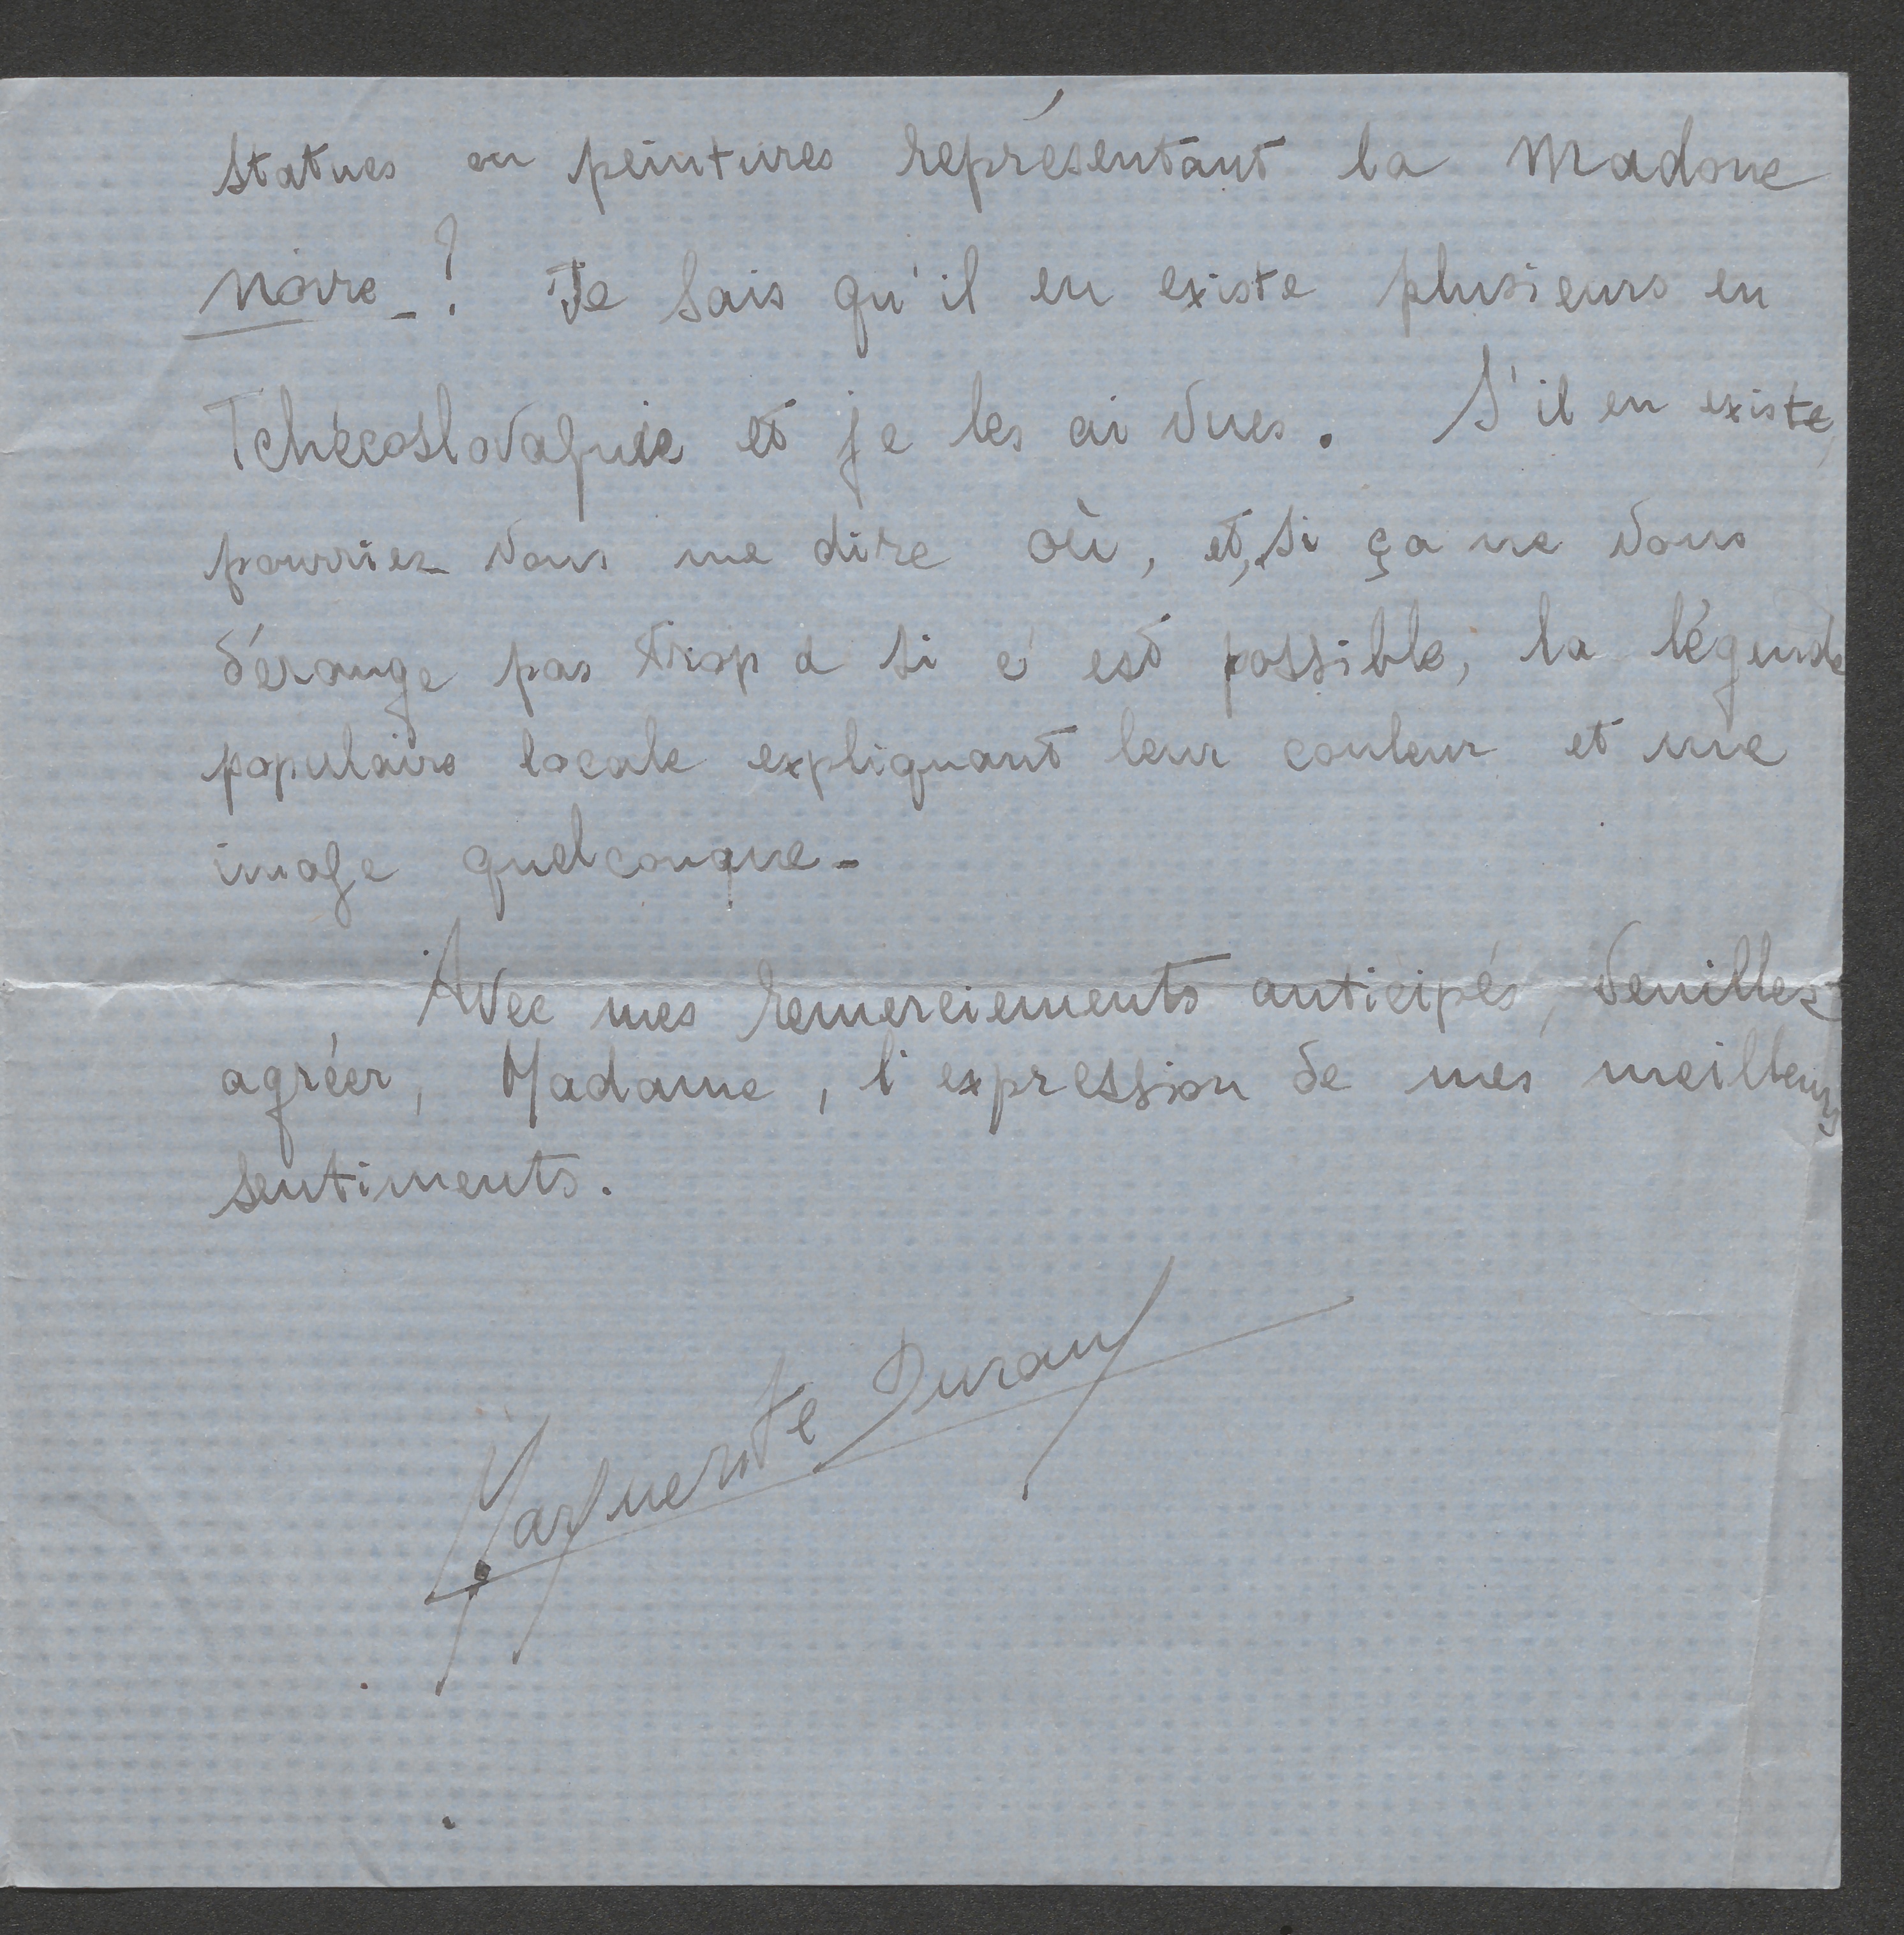 statues ou peintures représentant la Madone
noire_? Je sais qu'il en existe plusieurs en
Tchécoslovaquie et je les ai vues. S'il en existe,
pourriez-vous me dire où, et, si ça ne vous
dérange pas trop et si c'est possible, la légende
populaire locale expliquant leur couleur et une
image quelconque_
Avec mes remerciements anticipés, veuillez
agréer, Madame, l'expression de mes meilleurs
sentiments.
Marguerite Durand